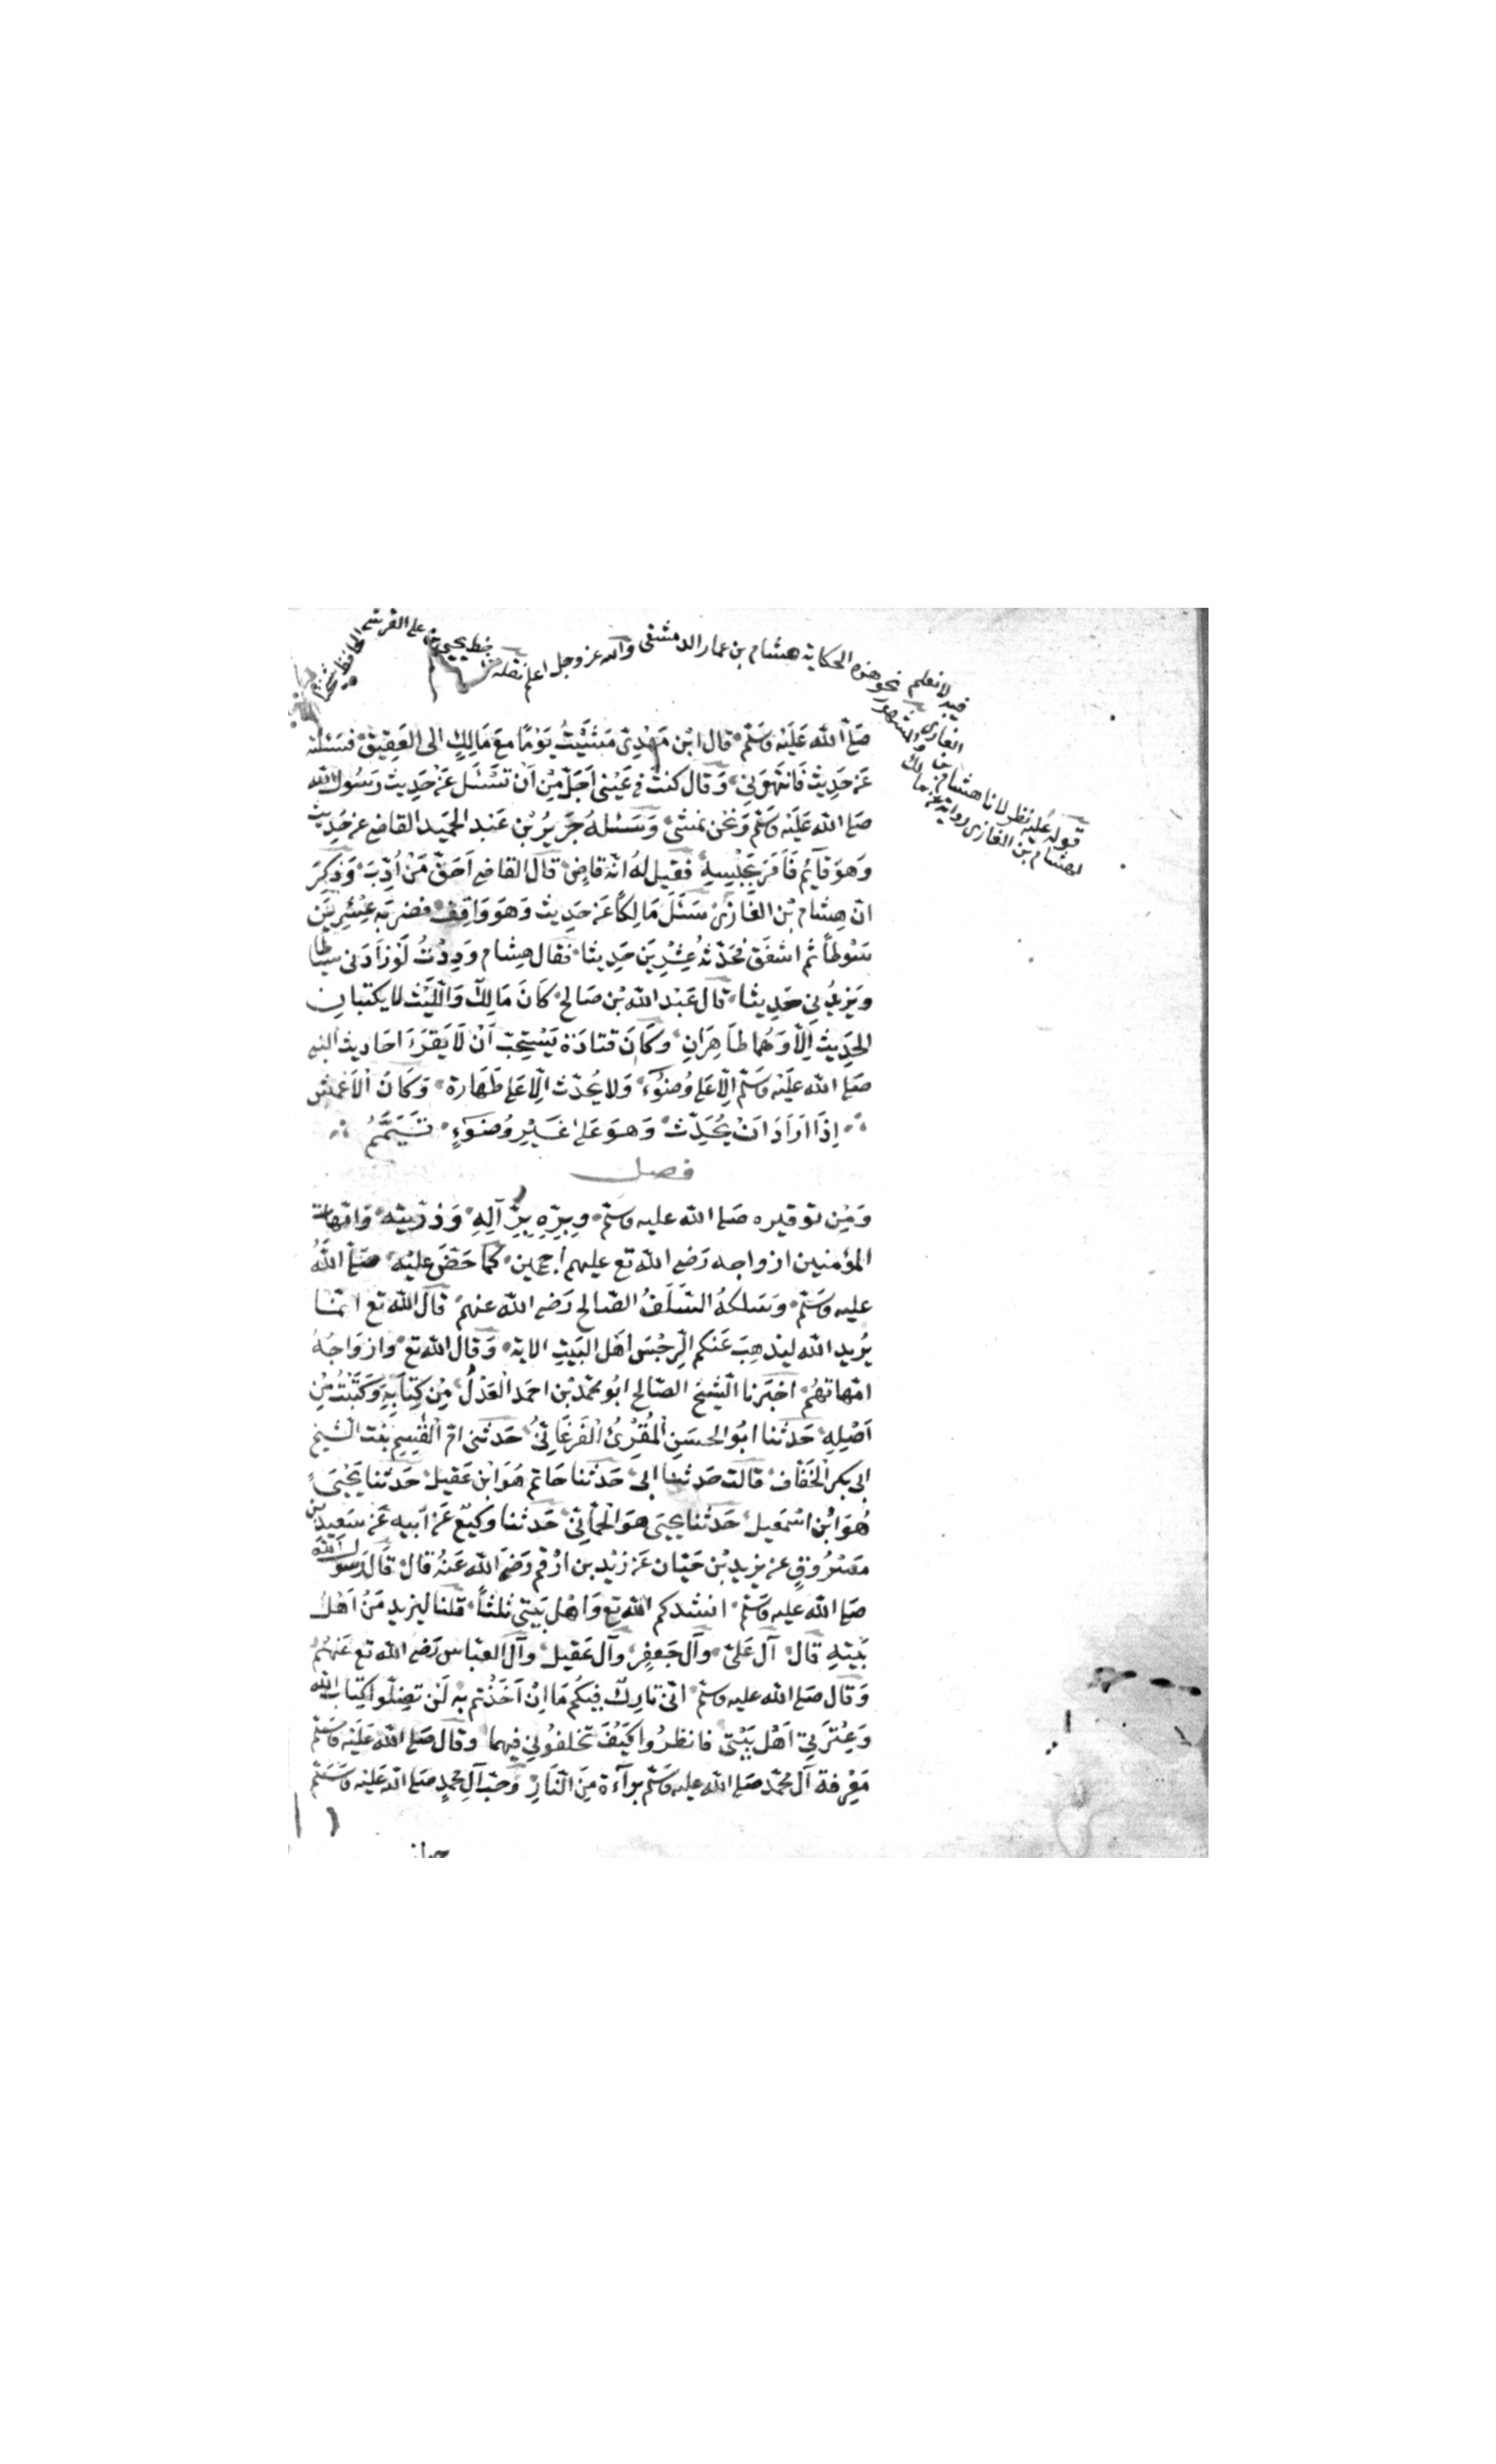 قيد لا نعلم نحو هذه الحكاية هشام بن عمار الدمشقى والله عز وجل اعلم نقلته من خط يحيى بن على القرشى الحافظ
الغازى والمشهور
قوله عليه نظر لانا هشام بن
لهشام بن الغازى رواية عن مالك
صَلَّ اللّه عَلَيْه وسَلّم قال ابْن مَهْدِىّ مَشَيْتُ يَوْمًا مَعَ مَالِكٍ الى العَقِيقِ فسَئَلْتُه
عَنْ حَدِيثٍ فَانْتَهَرَنِى وَقال كنتَ فى عَيْنى اَجَلّ مِنْ اَنْ تَسْئَل عَنْ حَدِيث رَسُول الله
صَلى الله عَلَيْه وسَلّم وَنَحْن نَمْشى وَسَئلهُ جَرِيرُ بْن عَبد الحَمِيد القاضى عن حَدِيث
وَهوَ قآئِم فَاَمَرَ بحَبْسِهِ فقيل لهُ انّه قاضٍ قالَ القاضى اَحَقّ مَنْ اُدِّبَ وَذُكِرَ
انّ هِشَام بْن الغَازِى سَئَلَ مَالِكاً عَنْ حَدِيث وَهوَ وَاقِف فضربَه عِشْرِينَ
سَوْطاً ثم اشفَقَ فحَدّثهُ عِشْرِينَ حَدِيثا فقَال هِشام وَدِدْتُ لَوْ زَادَنى سِيَاطا
ويَزِيْدُنِى حَدِيثا قال عَبْد الله بْن صَالح كَانَ مَالِكٌ وَاللّيْث لا يَكتبانِ
الحَدِيث اِلّا وَهُما طَاهِرَانِ وكَانَ قتادَة يَسْتَحِبّ اَنْ لَا يَقرَءَ احَاديث النبى
صَلى الله علَيْه وسَلّم اِلّا عَلى وُضوْءٍ وَلا يُحدّث اِلّا عَلى طَهَارة وَكَانَ الاَعْمَش
اِذَا اَرَادَ اَنْ يُحَدِّث وَهوَ عَلى غَيْرِ وُضوْءٍ تَيَمَّمَ
فصل
وَمِنْ توقيره صَلى الله عليه وسلّم وبِرِّهِ بِرُّ آلِهِ وَذرّيته وَامّهات
المؤمنين ازواجه رَضى الله تع عليهم اجمعين كمَا حَضّ عليْه صَلّى اللهُ
عليه وسَلّم وسَلكهُ السَّلَفُ الصّالح رَضى الله عنهم قالَ الله تع انّمَا
يُرِيد الله ليذهِبَ عَنكم الرِجْسَ اَهْل البَيتِ الاية وَقال الله تع وازوَاجُهُ
امّهاتهُم اخبَرنا الشّيخ الصّالح ابُو محمّد بْن احمَد العَدْلُ مِنْ كِتَابِهِ وَكَتَبْتُ مِنْ
اَصْلِهِ حَدثنا ابُو الحسَنِ المُقْرِئُ الفَرْغَانِىُّ حَدثتنى امّ القٰسِم بنت الشيخ
ابى بكر الخَفّاف قالت حَدثنا ابى حَدثنا حَاتم هُوَ ابْن عَقيل حَدثنا يَحْيى
هُوَ ابْن اسْمٰعيل حَدثنا يحيى هوَ الحِمَّانِىّ حَدثنا وكيع عَنْ اَبيه عَنْ سَعيد بن
مَسْرُوقٍ عن يزيد بْن حَيّان عَن زيْد بن ارْقم رَضىَ الله عَنهُ قال قَال رَسول الله
صَلى الله عليه وسَلّم انشدكم الله تع وَاهْل بَيتى ثلثاً قلنا ليزيد مَنْ اَهْلُ
بَيْتِهِ قال آل عَلىّ وآل جَعفر وآل عَقيل وآل العبّاس رَضى الله تع عَنهُمْ
وَقال صَلى الله عليه وسلّم انّى تارِكٌ فِيكم مَا اِنْ اَخذْتم بِهِ لَنْ تضِلّوا كتاب الله
وَعِتْرَتِى اَهْل بَيْتى فانظرُوا كيْفَ تخلفُونِى فيهما وقال صَلى الله علَيه وسَلّم
مَعْرِفة آل محمّد صَلى الله عليه وسَلّم برآءة مِنَ النّارِ وَحُبّ آلِ محمدٍ صَلى الله علَيْه وسَلّم
جواز